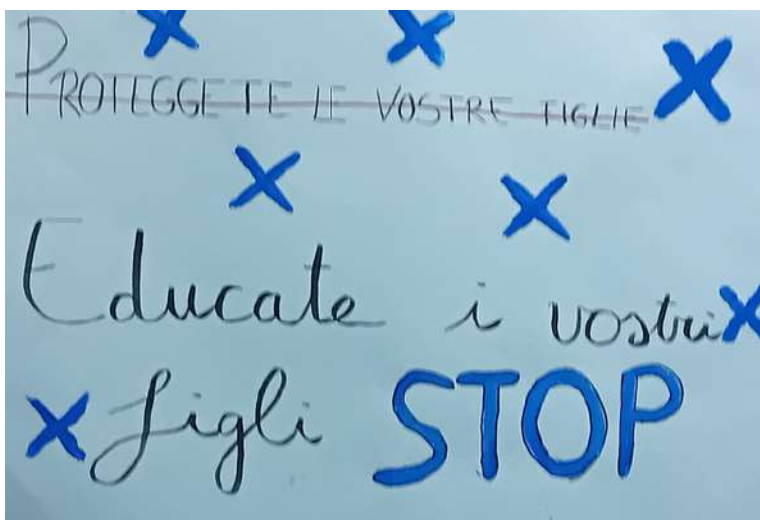 PROTEGGETE LE VOSTRE FIGLIE
Educate i vostri
figli STOP